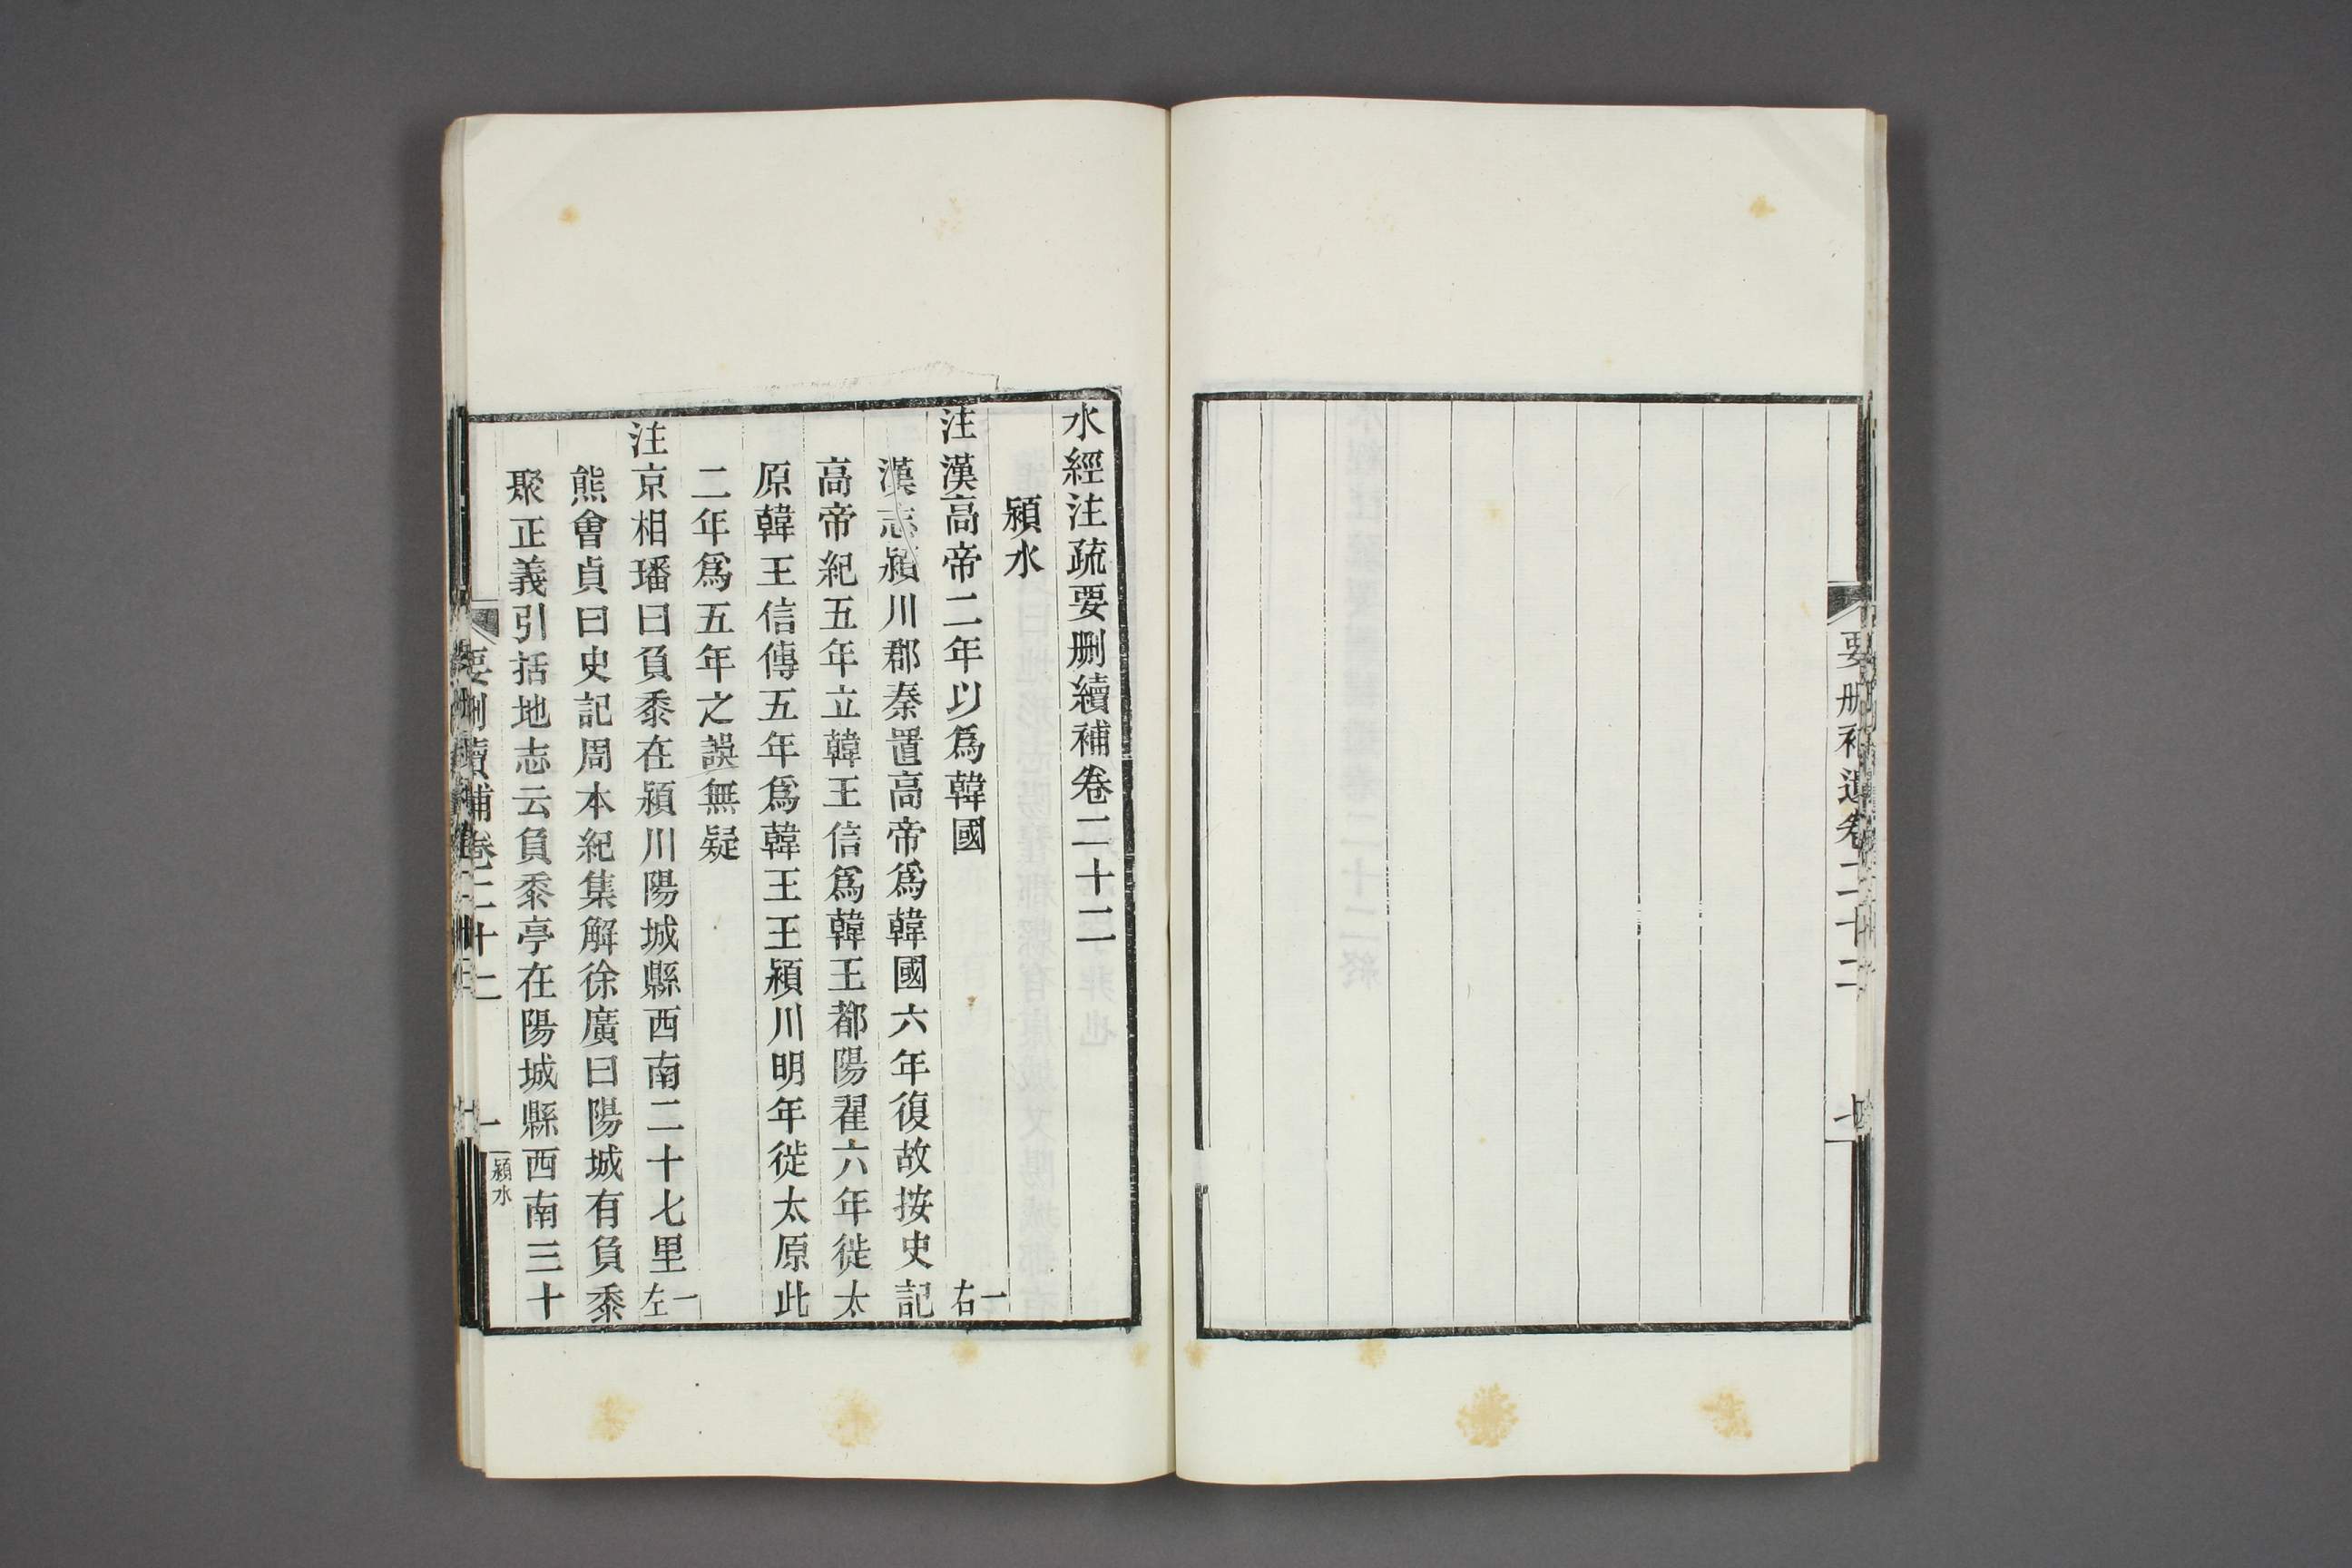 要刪補遺卷二十二
水經注疏要刪續補卷二十二
潁水
注漢高帝二年以爲韓國 一右
漢志潁川郡秦置高帝爲韓國六年復故按史記
高帝紀五年立韓王信爲韓王都陽翟六年徙太
原韓王信傳五年爲韓王王潁川明年徙太原此
二年爲五年之誤無疑
注京相璠曰負黍在潁川陽城縣西南二十七里 一左
熊會貞曰史記周本紀集解徐廣曰陽城有負黍
聚正義引括地志云負黍亭在陽城縣西南三十
要刪續補卷二十二 一 潁水